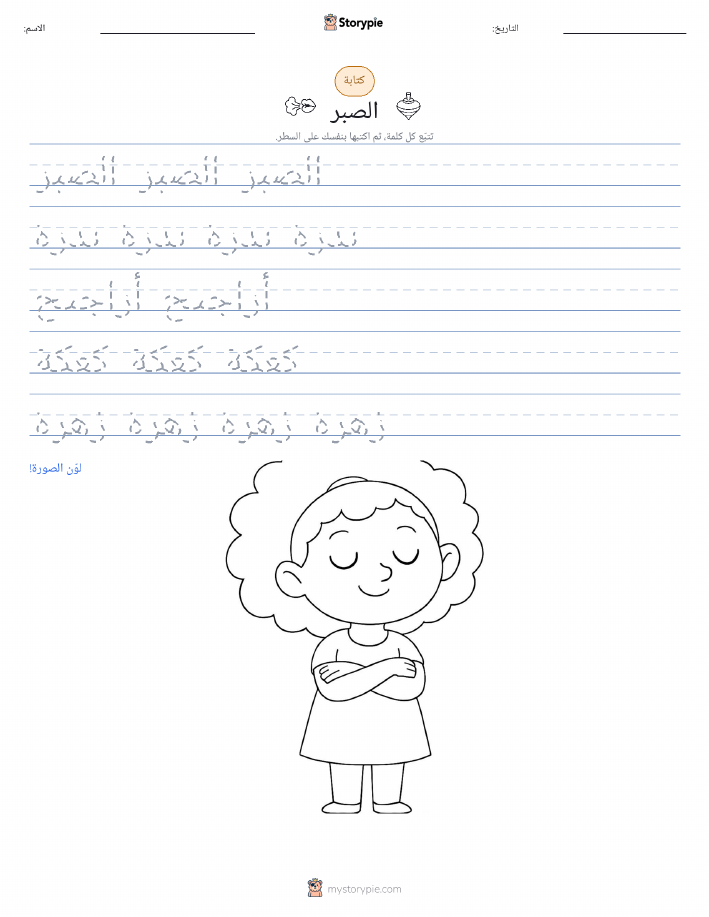 الاسم:
Storypie
التاريخ:
كتابة
الصبر
تتبّع كل كلمة، ثم اكتبها بنفسك على السطر.
الصبر الصبر الصبر
بذرة بذرة بذرة بذرة
أراجيح أراجيح
كعكة كعكة كعكة
زهرة زهرة زهرة زهرة
لوّن الصورة!
mystorypie.com